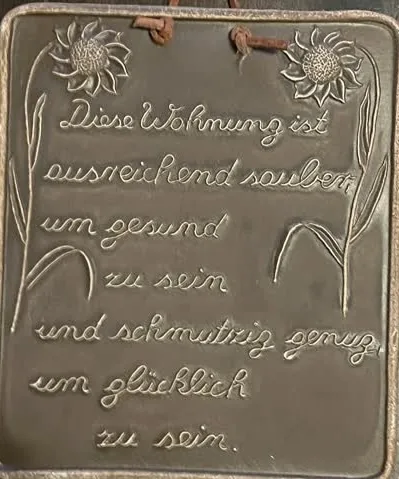 Diese Wohnung ist
ausreichend sauber,
um gesund
zu sein
und schmutzig genug,
um glücklich
zu sein.